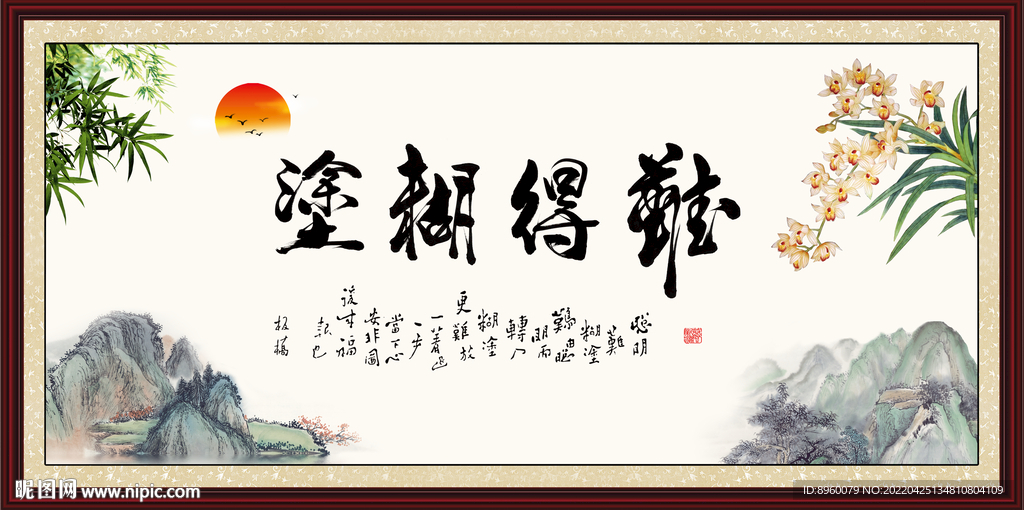 難得糊塗
聰明
難
糊塗
難由聰
明而
轉入
糊塗
更難放
一著退
一步
當下心
安非圖
後來福
報也
板橋
昵图网 www.nipic.com
ID:8960079 NO:20220425134810804109